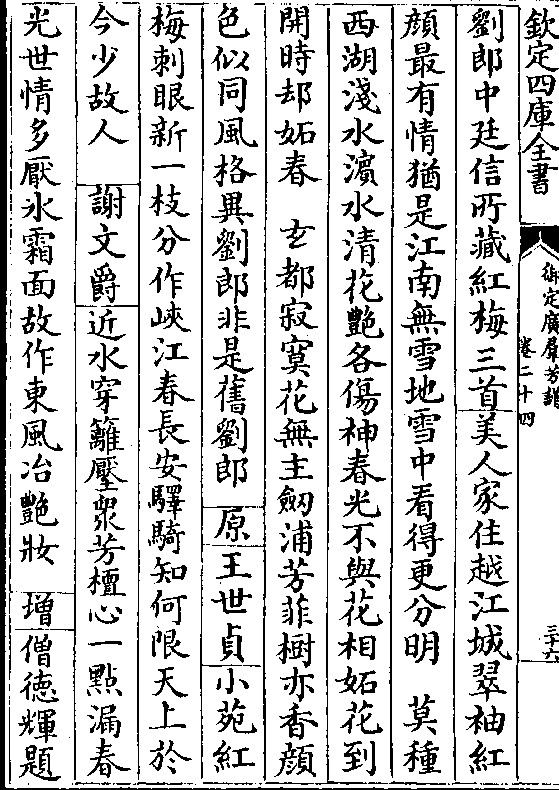 欽定四庫全書
御定廣羣芳譜
卷二十四
三十六
劉郎中廷信所藏紅梅三首美人家住越江城翠袖紅
顔最有情猶是江南無雪地雪中看得更分明　莫種
西湖淺水濵水清花艷各傷神春光不與花相妬花到
開時却妬春　𤣥都寂寞花無主劒浦芳菲樹亦香顔
色似同風格異劉郎非是舊劉郎　原王世貞小苑紅
梅刺眼新一枝分作峽江春長安驛騎知何限天上於
今少故人　謝文爵近水穿籬壓衆芳檀心一點漏春
光世情多厭氷霜面故作東風冶艷妝　增僧徳輝題